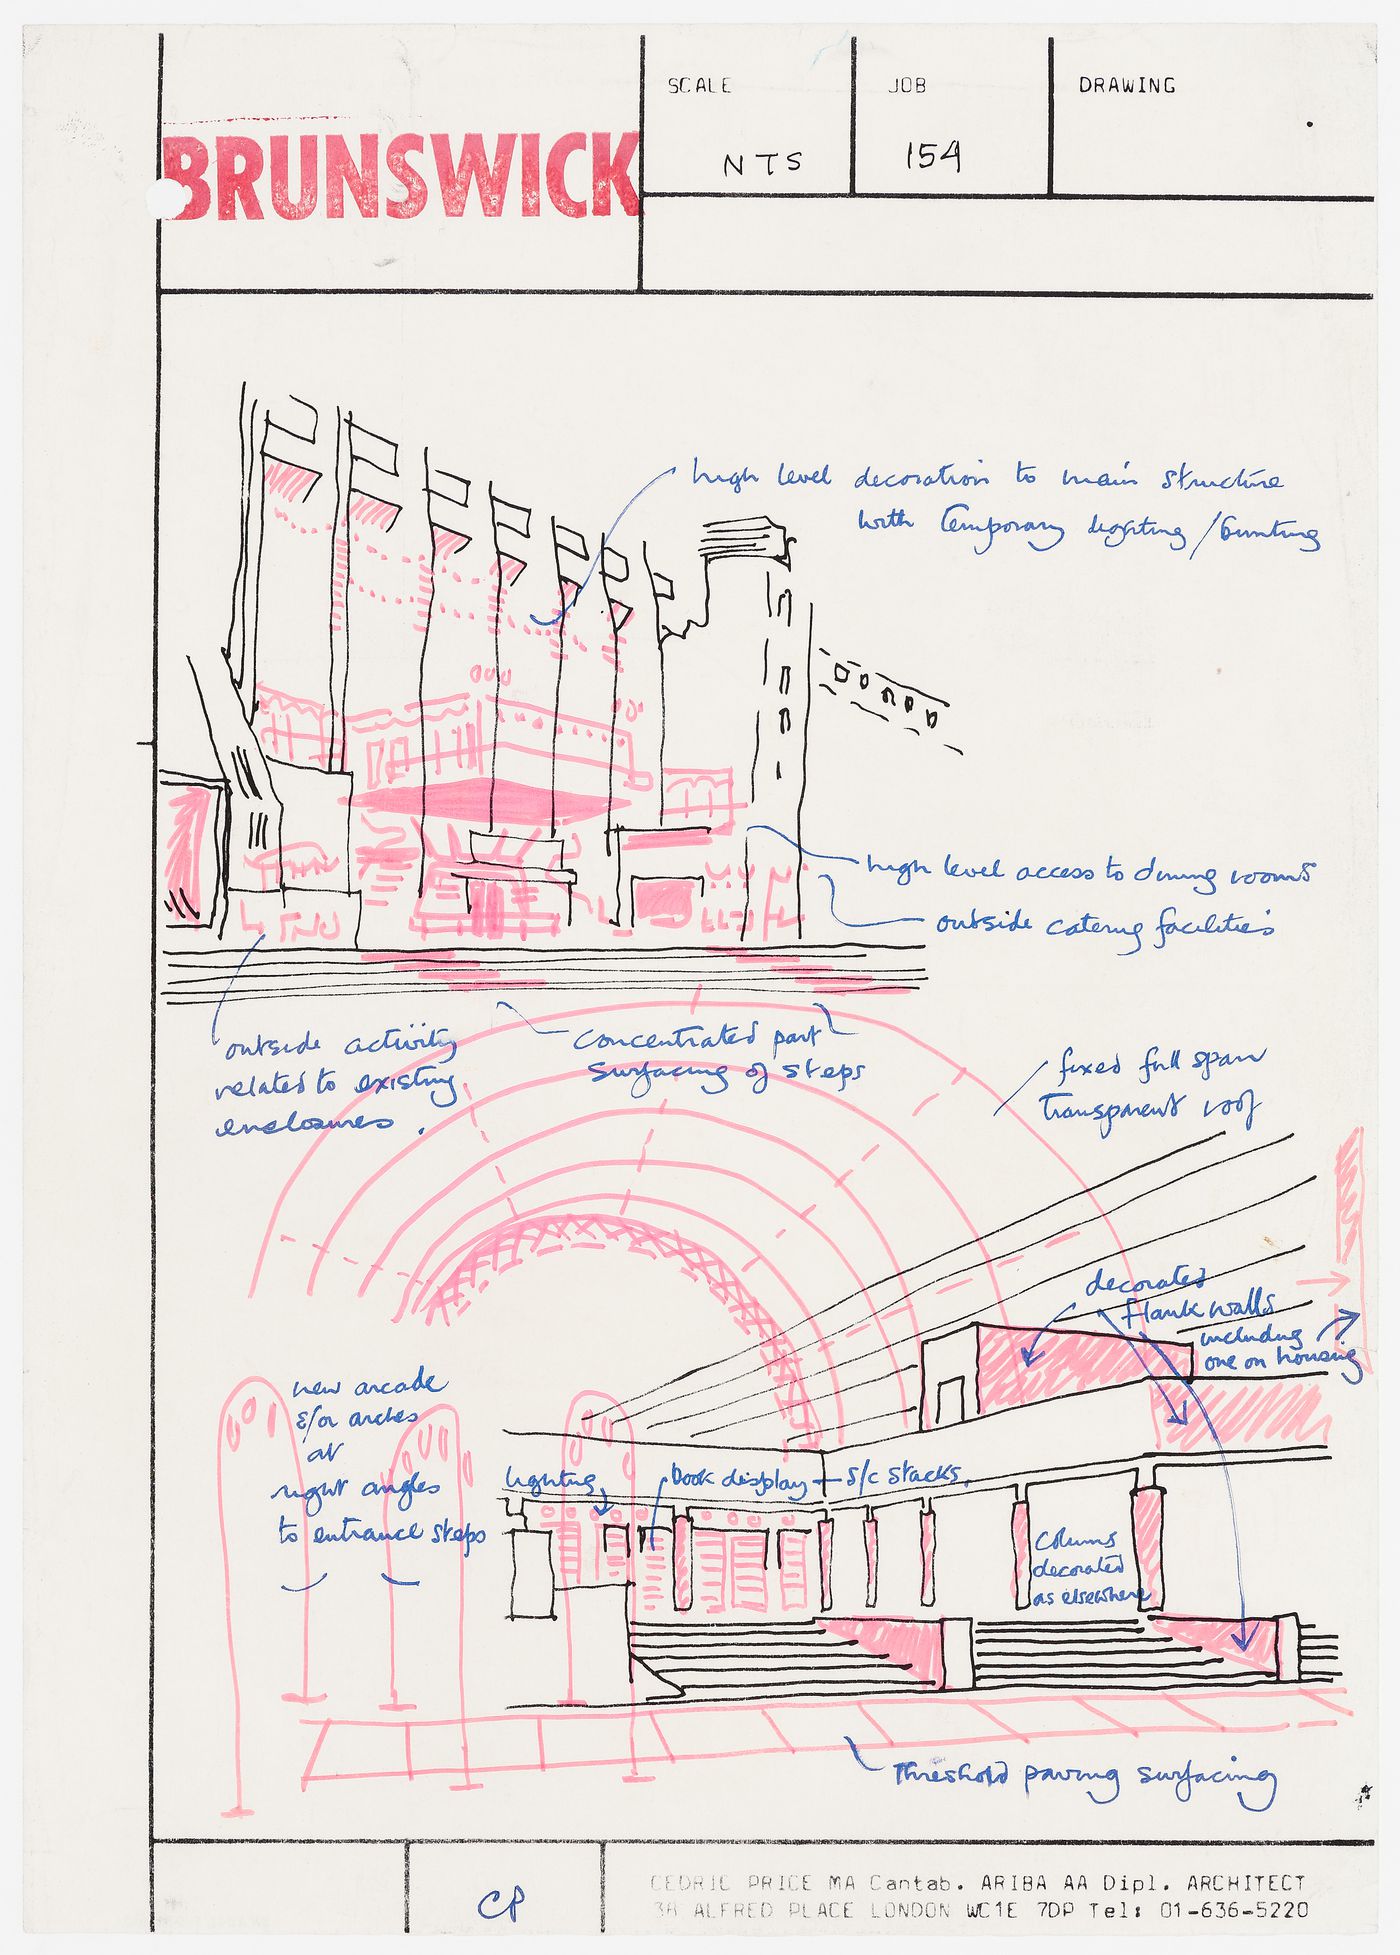 SCALE
JOB
DRAWING
BRUNSWICK
NTS
154
high level decoration to main structure
with temporary lighting / bunting
high level access to dining rooms
outside catering facilities
outside activity
related to existing
enclosures.
concentrated part
surfacing of steps
fixed full span
transparent roof
decorated
flank walls
including
one on housing
new arcade
&/or arches
at
right angles
to entrance steps
lighting
book display — s/c stacks.
columns
decorated
as elsewhere
threshold paving surfacing
CP
CEDRIC PRICE MA Cantab. ARIBA AA Dipl. ARCHITECT
38 ALFRED PLACE LONDON WC1E 7DP Tel: 01-636-5220